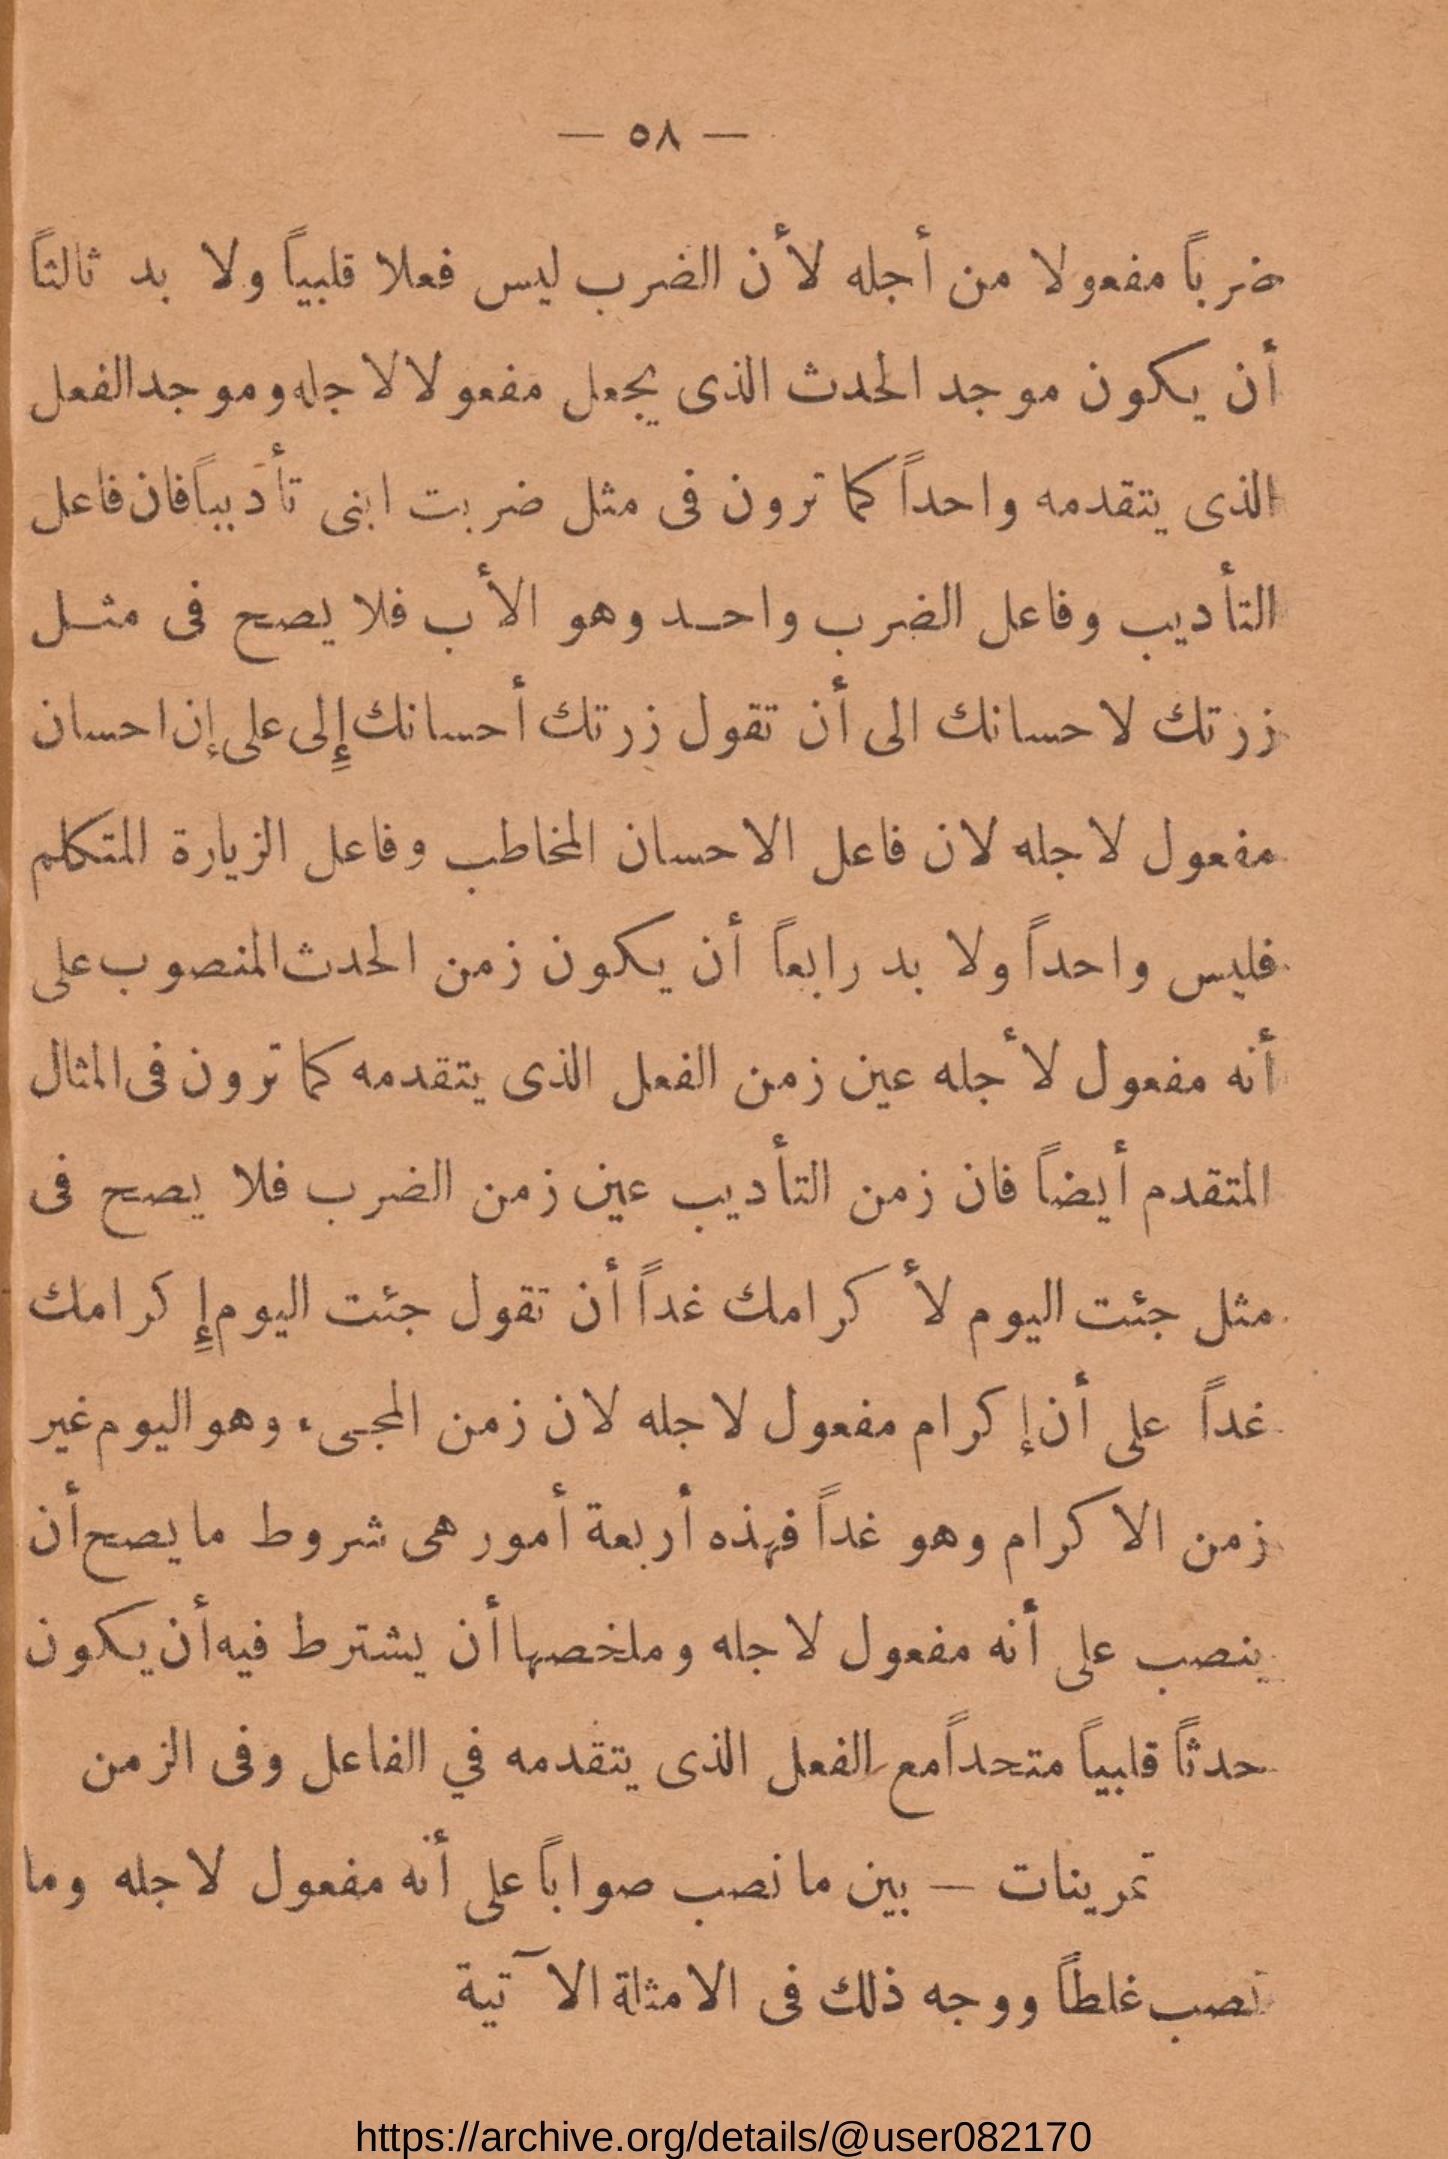 — ٥٨ —
ضرباً مفعولا من أجله لأن الضرب ليس فعلا قلبياً ولا بد ثالثاً
أن يكون موجد الحدث الذى يجعل مفعولا لاجله وموجد الفعل
الذى يتقدمه واحداً كما ترون فى مثل ضربت ابنى تأديباً فان فاعل
التأديب وفاعل الضرب واحد وهو الأب فلا يصح فى مثل
زرتك لاحسانك الى أن تقول زرتك أحسانك إلى على إن احسان
مفعول لاجله لان فاعل الاحسان المخاطب وفاعل الزيارة المتكلم
فليس واحداً ولا بد رابعاً أن يكون زمن الحدث المنصوب على
أنه مفعول لأجله عين زمن الفعل الذى يتقدمه كما ترون فى المثال
المتقدم أيضاً فان زمن التأديب عين زمن الضرب فلا يصح فى
مثل جئت اليوم لأكرامك غداً أن تقول جئت اليوم إكرامك
غداً على أن إكرام مفعول لاجله لان زمن المجىء وهو اليوم غير
زمن الاكرام وهو غداً فهذه أربعة أمور هى شروط ما يصح أن
ينصب على أنه مفعول لاجله وملخصها أن يشترط فيه أن يكون
حدثاً قلبياً متحداً مع الفعل الذى يتقدمه في الفاعل وفى الزمن
تمرينات — بين ما نصب صواباً على أنه مفعول لاجله وما
نصب غلطاً ووجه ذلك فى الامثلة الآتية
https://archive.org/details/@user082170